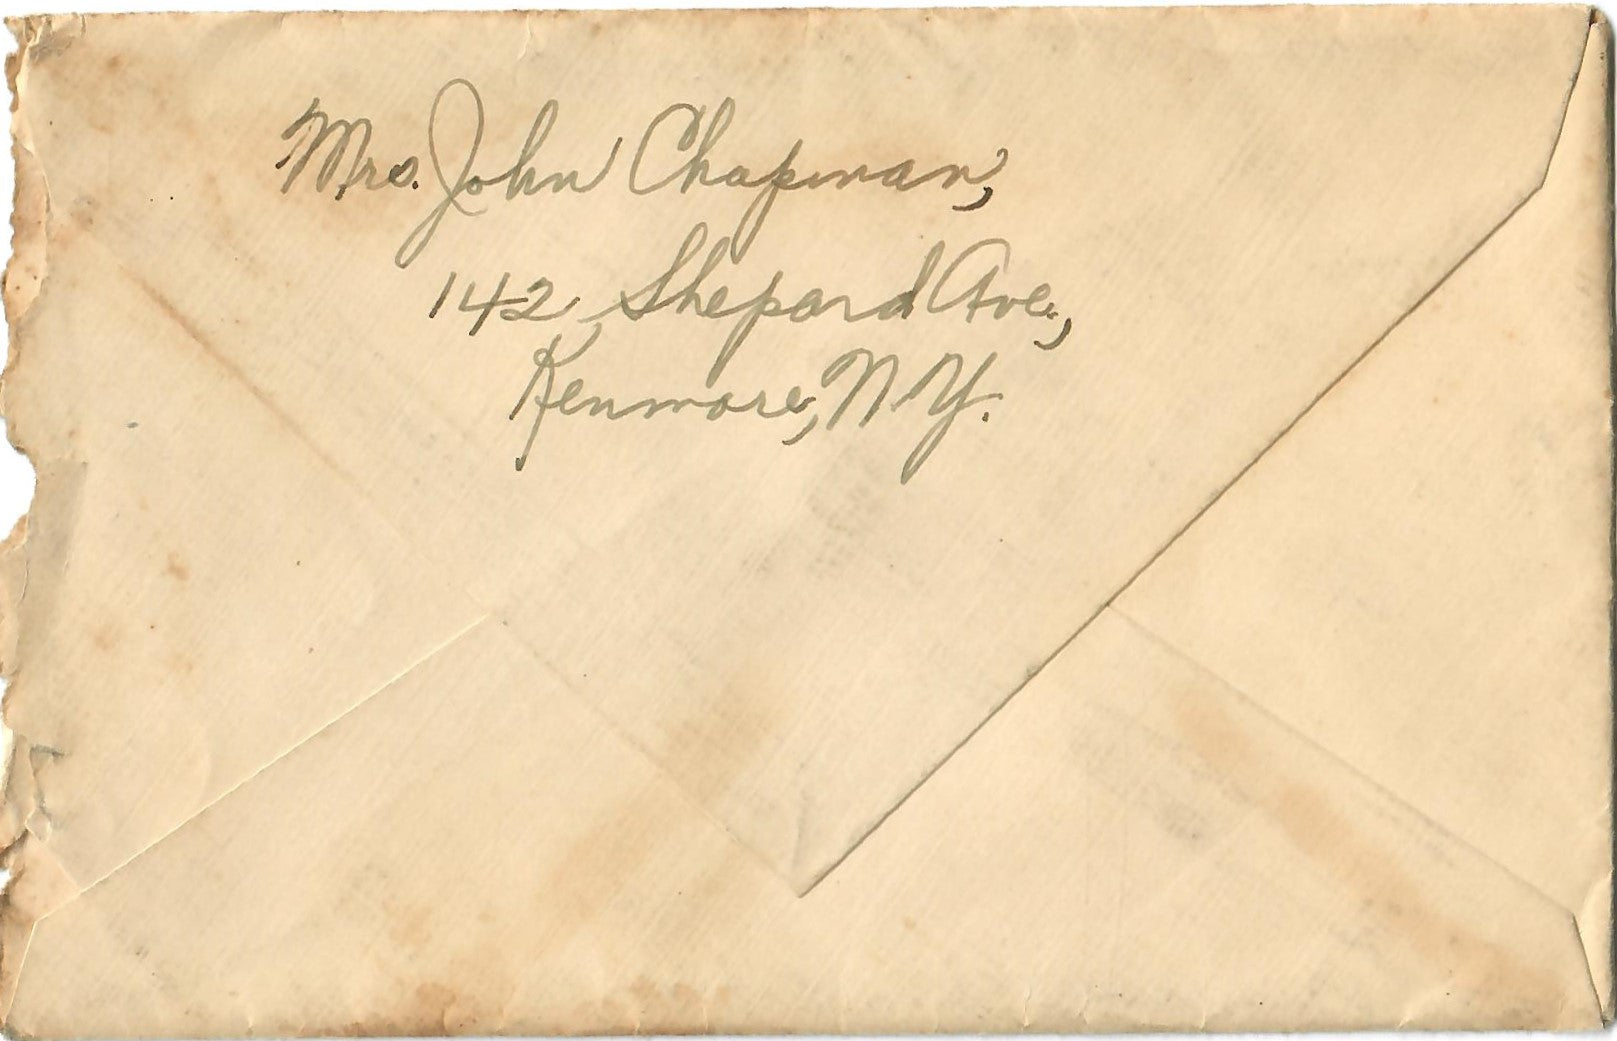 Mrs. John Chapman,
142, Shepard Ave.,
Kenmore, N.Y.